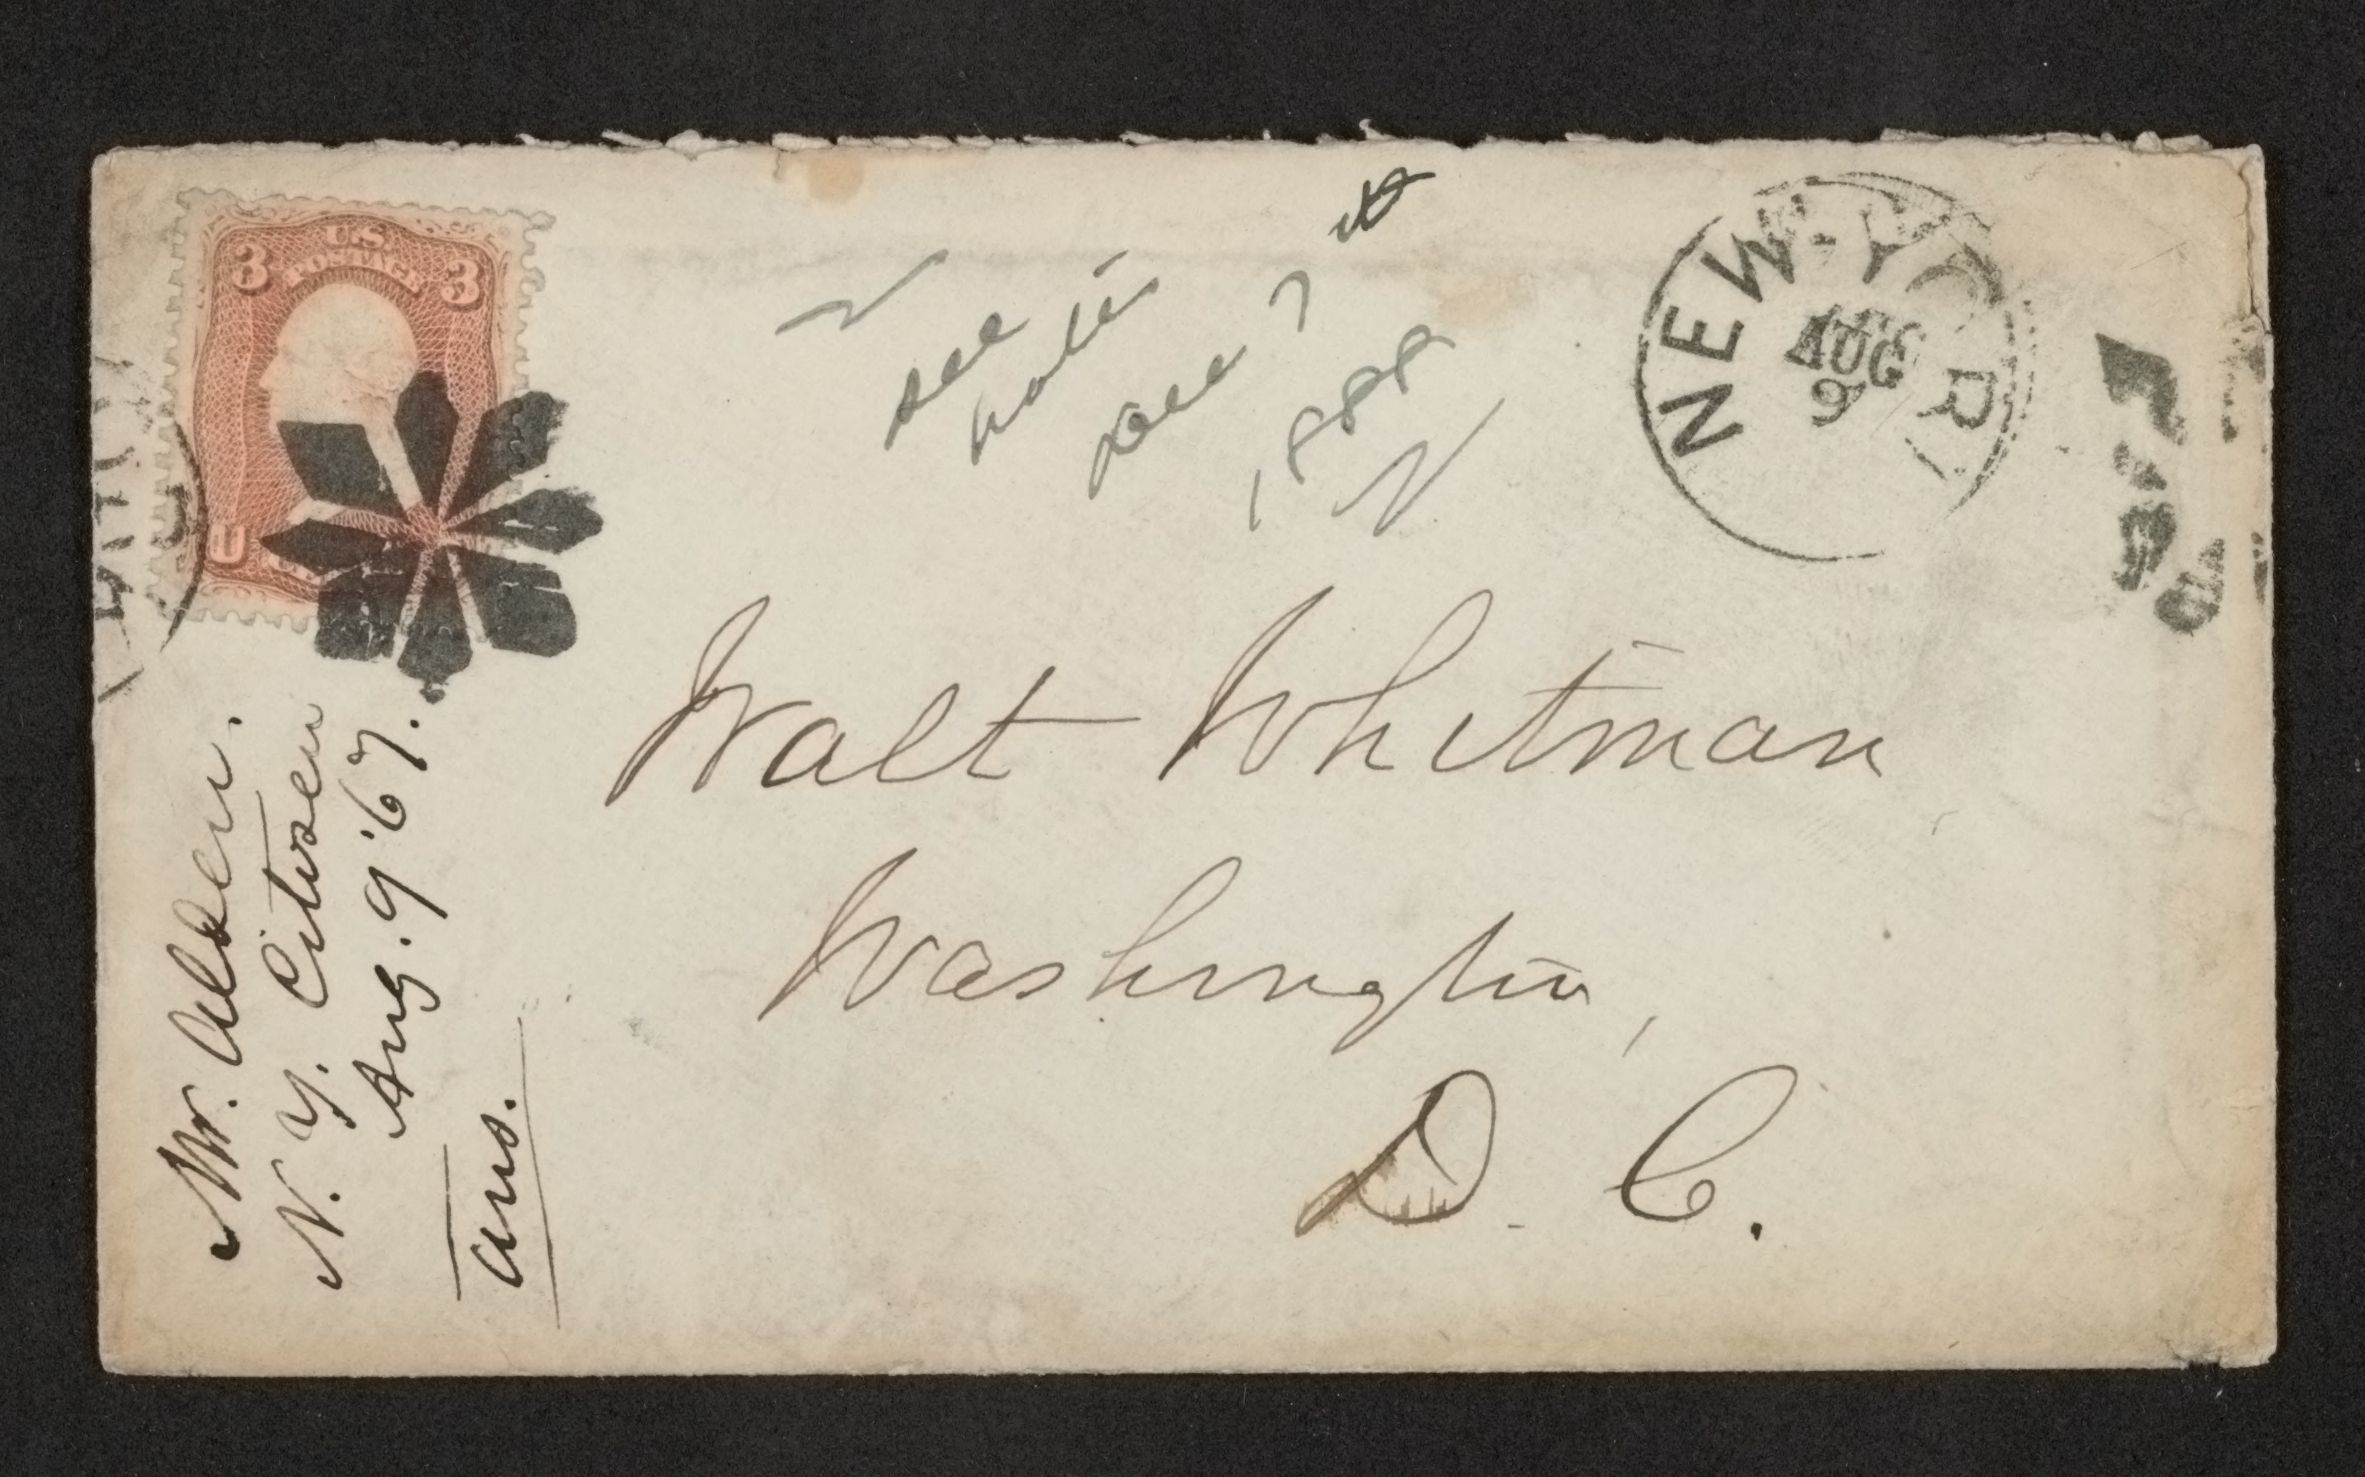 U.S.
3 POSTAGE 3
U
see
notes
Dec 7
1888
NEW-YOR
AUG
9
Walt Whitman
Washington,
D. C.
Mr. Alden.
N. Y. Citizen
Aug. 9 '67.
ans.